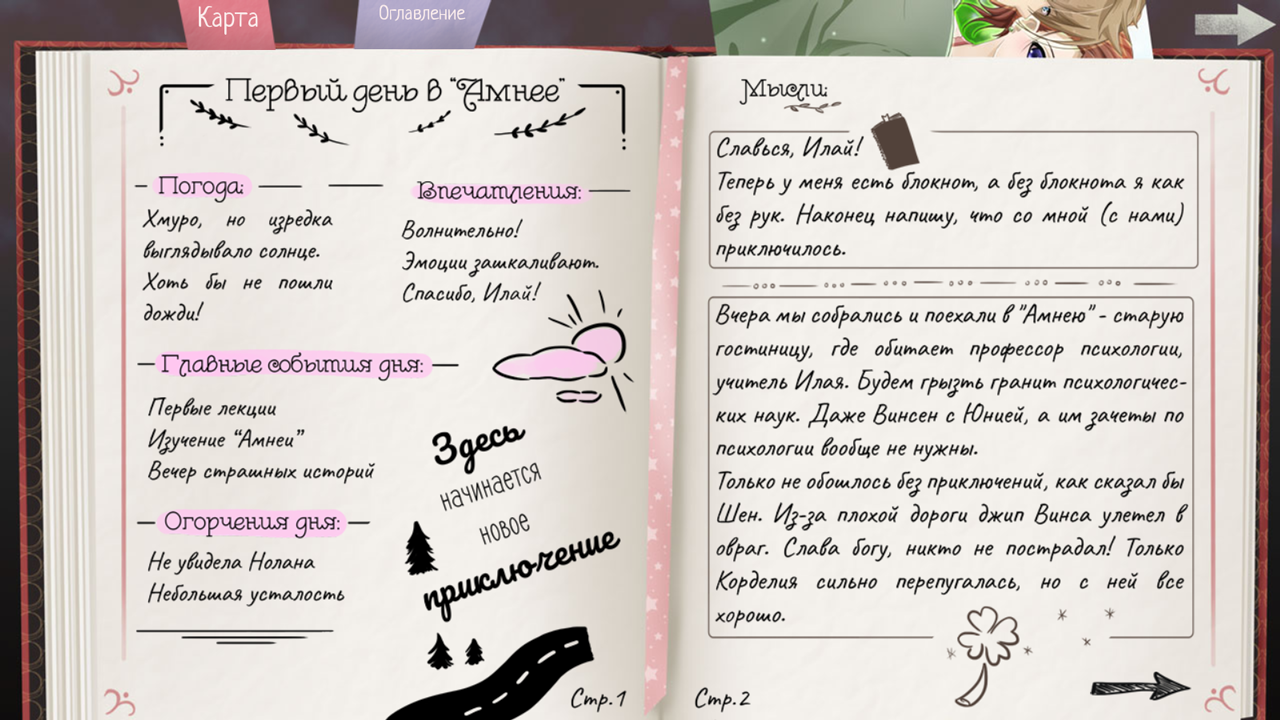 Карта
Оглавление
Первый день в "Амнее"
Погода:
Хмуро, но изредка
выглядывало солнце.
Хоть бы не пошли
дожди!
Впечатления:
Волнительно!
Эмоции зашкаливают.
Спасибо, Илай!
Главные события дня:
Первые лекции
Изучение “Амнеи”
Вечер страшных историй
Огорчения дня:
Не увидела Нолана
Небольшая усталость
Здесь
начинается
новое
приключение
Стр.1
Мысли:
Славься, Илай!
Теперь у меня есть блокнот, а без блокнота я как
без рук. Наконец напишу, что со мной (с нами)
приключилось.
Вчера мы собрались и поехали в "Амнею" - старую
гостиницу, где обитает профессор психологии,
учитель Илая. Будем грызть гранит психологичес-
ких наук. Даже Винсен с Юнией, а им зачеты по
психологии вообще не нужны.
Только не обошлось без приключений, как сказал бы
Шен. Из-за плохой дороги джип Винса улетел в
овраг. Слава богу, никто не пострадал! Только
Корделия сильно перепугалась, но с ней все
хорошо.
Стр.2